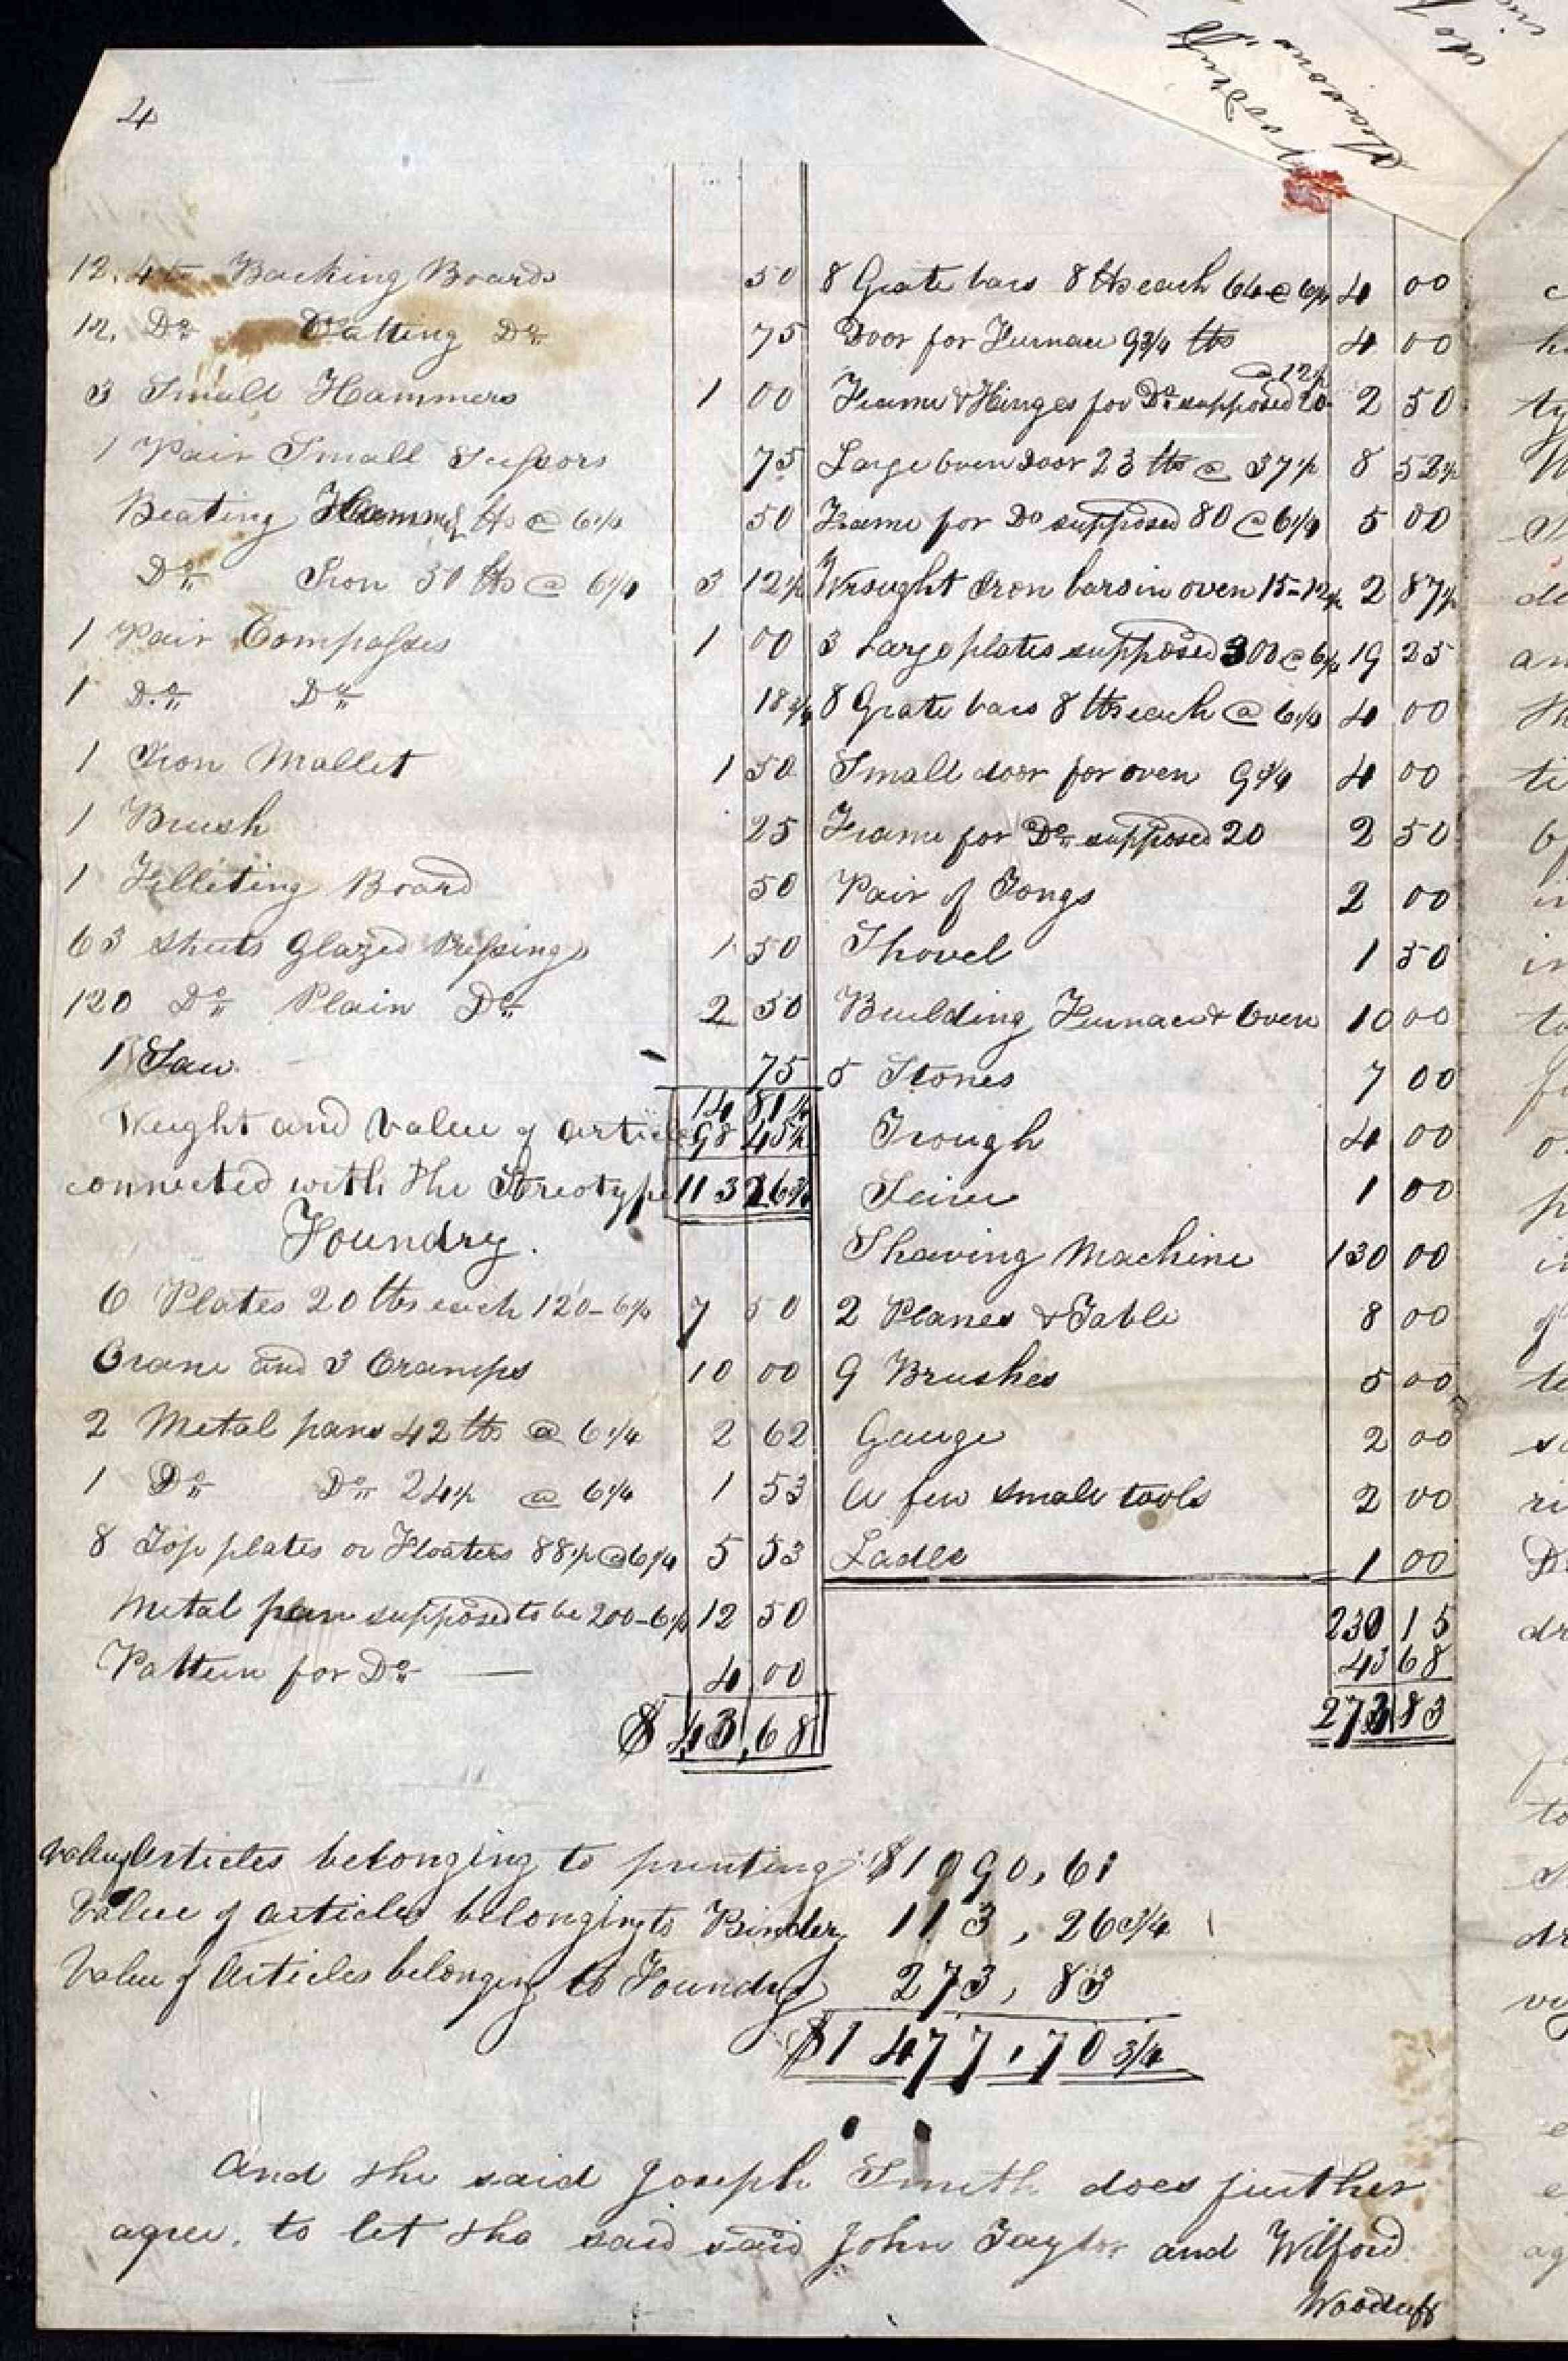 4
12. 4to Backing Boards 50
12. Do Vatting Do 75
3 Small Hammers 1 00
1 Pair Small Scissors 75
Beating Hammer lbs @ 6 1/4 50
Do Iron 50 lbs @ 6 1/4 3 12 1/2
1 Pair Compasses 1 00
1 Do Do 18 3/4
1 Iron Mallet 1 50
1 Brush 25
1 Filleting Board 50
63 sheets Glazed Pressings 1 50
120 Do Plain Do 2 50
1 Saw 75
14 81 1/4
98 45 1/2
113 26 3/4
Weight and Value of article
connected with the Streotype
Foundry.
6 Plates 20 lbs each 120 - 6 1/4 7 50
Crane and 3 Cramps 10 00
2 Metal pans 42 lbs @ 6 1/4 2 62
1 Do Do 24 1/2 @ 6 1/4 1 53
8 Top plates or Floaters 88 1/2 @ 6 1/4 5 53
Metal pan supposed to be 200 - 6 1/4 12 50
Pattern for Do 4 00
$ 43,68
8 Grate bars 8 lbs each 64 @ 6 1/4 4 00
Door for Furnace 9 3/4 lbs 4 00
@ 12 1/2
Frame & Hinges for Do supposed 20 2 50
Large Oven Door 23 lbs @ 37 1/2 8 52 1/2
Frame for Do supposed 80 @ 6 1/4 5 00
Wrought Iron bars in oven 15 - 12 1/2 2 87 1/2
3 Large plates supposed 300 @ 6 1/4 19 25
8 Grate bars 8 lbs each @ 6 1/4 4 00
Small door for oven 9 3/4 4 00
Frame for Do supposed 20 2 50
Pair of Tongs 2 00
Shovel 1 50
Building Furnace & Oven 10 00
5 Stones 7 00
Trough 4 00
Seive 1 00
Shaving Machine 130 00
2 Planes & Table 8 00
9 Brushes 5 00
Gauge 2 00
A few small tools 2 00
Ladle 1 00
230 15
43 68
273 83
Value of Articles belonging to printing $1090,61
Value of articles belonging to Bindery 113, 26 3/4
Value of Articles belonging to Foundry 273, 83
$1477,70 3/4
And the said Joseph Smith does further
agree, to let the said said John Taylor and Wilford
Woodruff